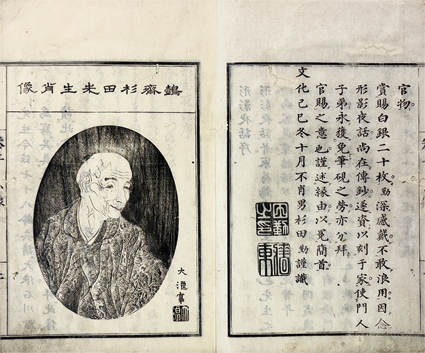 官物
賞賜白銀二十枚勗深感戴不敢浪用因念
形影夜話尚在傳鈔遂資以刻于家使門人
子弟永獲免筆硯之勞亦分拜
官賜之意也謹述緣由以冕簡首
文化己巳冬十月不肖男杉田勗謹識
鷧齋杉田先生肖像
大浪寫